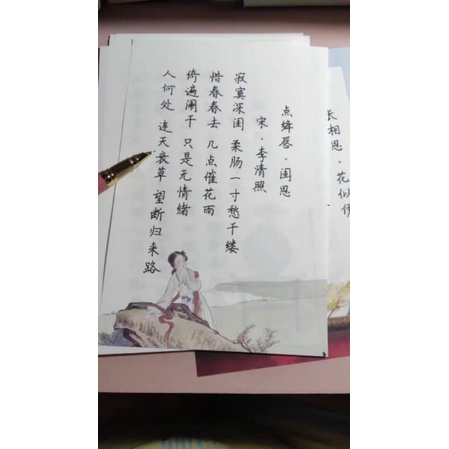 长相思·花似
点绛唇·闺思
宋·李清照
寂寞深闺 柔肠一寸愁千缕
惜春春去 几点催花雨
倚遍阑干 只是无情绪
人何处 连天衰草 望断归来路